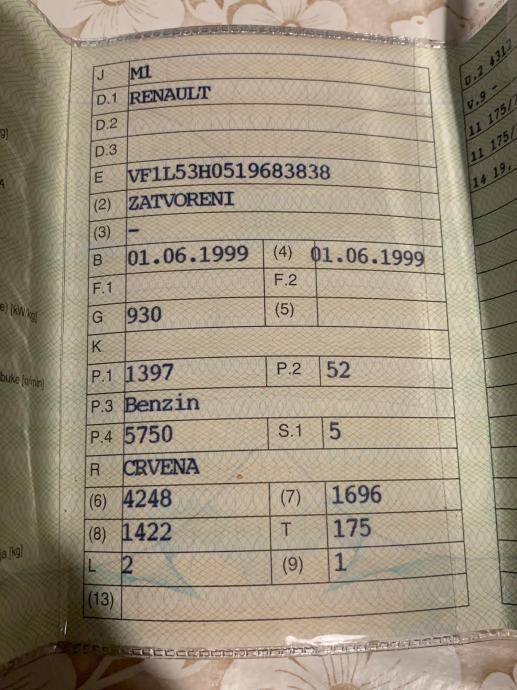 J M1
D.1 RENAULT
D.2
D.3
E VF1L53H0519683838
(2) ZATVORENI
(3) –
B 01.06.1999 (4) 01.06.1999
F.1 F.2
G 930 (5)
K
P.1 1397 P.2 52
P.3 Benzin
P.4 5750 S.1 5
R CRVENA
(6) 4248 (7) 1696
(8) 1422 T 175
L 2 (9) 1
(13)
g)
e) [kW kg]
buke [o/min]
ja [kg]
U.2 4312
V.9 -
11 175/
11 175/
14 19,